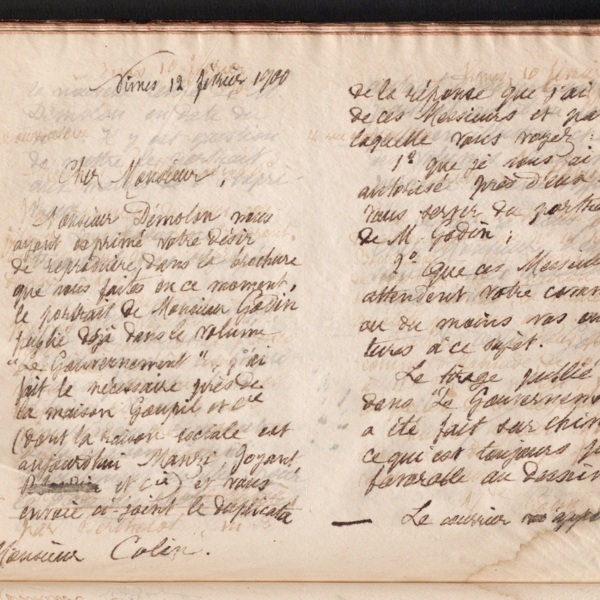 Nimes 12 février 1900
Cher Monsieur,
Monsieur Démolon nous
ayant exprimé votre désir
de reproduire, dans la brochure
que vous faites en ce moment,
le portrait de Monsieur Godin
publié déjà dans le volume
"Le Gouvernement", j'ai
fait le nécessaire près de
la maison Goupil et Cie
(dont la raison sociale est
aujourd'hui Manzi Joyant
et Cie) et vous
envoie ci-joint le duplicata
Monsieur Colin.
de la réponse que j'ai
de ces Messieurs et pa
laquelle vous voyez :
1° que je vous ai
autorisé près d'eux
vous servir du portra
de M. Godin ;
2° Que ces Messieurs
attendent votre comm
ou du moins vos ou
tures à ce sujet.
Le tirage publié
dans "Le Gouverneme
a été fait sur chin
ce qui est toujours
favorable au dessin
— Le courrier